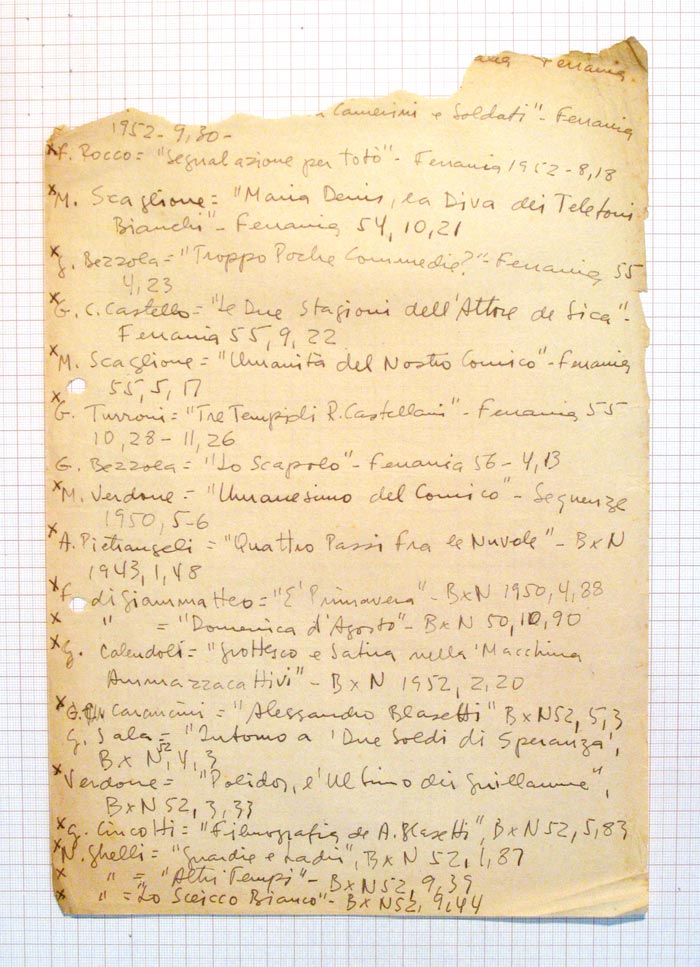 Ferrania.
Camerini e Soldati" - Ferrania
1952 - 9,30 -
x F. Rocco = "Segnalazione per Totò" - Ferrania 1952 - 8,18
x M. Scaglione = "Maria Denis, la Diva dei Telefoni
Bianchi" - Ferrania 54, 10, 21
x G. Bezzola = "Troppo Poche Commedie?" - Ferrania 55
4, 23
x G. C. Castello = "Le Due Stagioni dell'Attore de Sica" -
Ferrania 55, 9, 22
x M. Scaglione = "Umanità del Nostro Comico" - Ferrania
55, 5, 17
x G. Turroni = "Tre Tempi di R. Castellani" - Ferrania 55
10, 28 - 11, 26
G. Bezzola = "Lo Scapolo" - Ferrania 56 - 4, 13
x M. Verdone = "Umanesimo del Comico" - Sequenze
1950, 5-6
x A. Pietrangeli = "Quattro Passi fra le Nuvole" - B x N
1943, 1, 48
x F. di Giammatteo = "E' Primavera" - B x N 1950, 4, 88
x " = "Domenica d'Agosto" - B x N 50, 10, 90
x G. Calendoli = "Grottesco e Satira nella 'Macchina
Ammazzacattivi" - B x N 1952, 2, 20
x G. Carancini = "Alessandro Blasetti" B x N 52, 5, 3
G. Sala = "Intorno a 'Due Soldi di Speranza',
B x N 52, 4, 3
x Verdone = "Polidor, l'Ultimo dei Guillaume",
B x N 52, 3, 33
x G. Cincotti = "Filmografia de A. Blasetti", B x N 52, 5, 83
x N. Ghelli = "Guardie e Ladri", B x N 52, 1, 87
x " = "Altri Tempi" - B x N 52, 9, 39
x " = "Lo Sceicco Bianco" - B x N 52, 9, 44